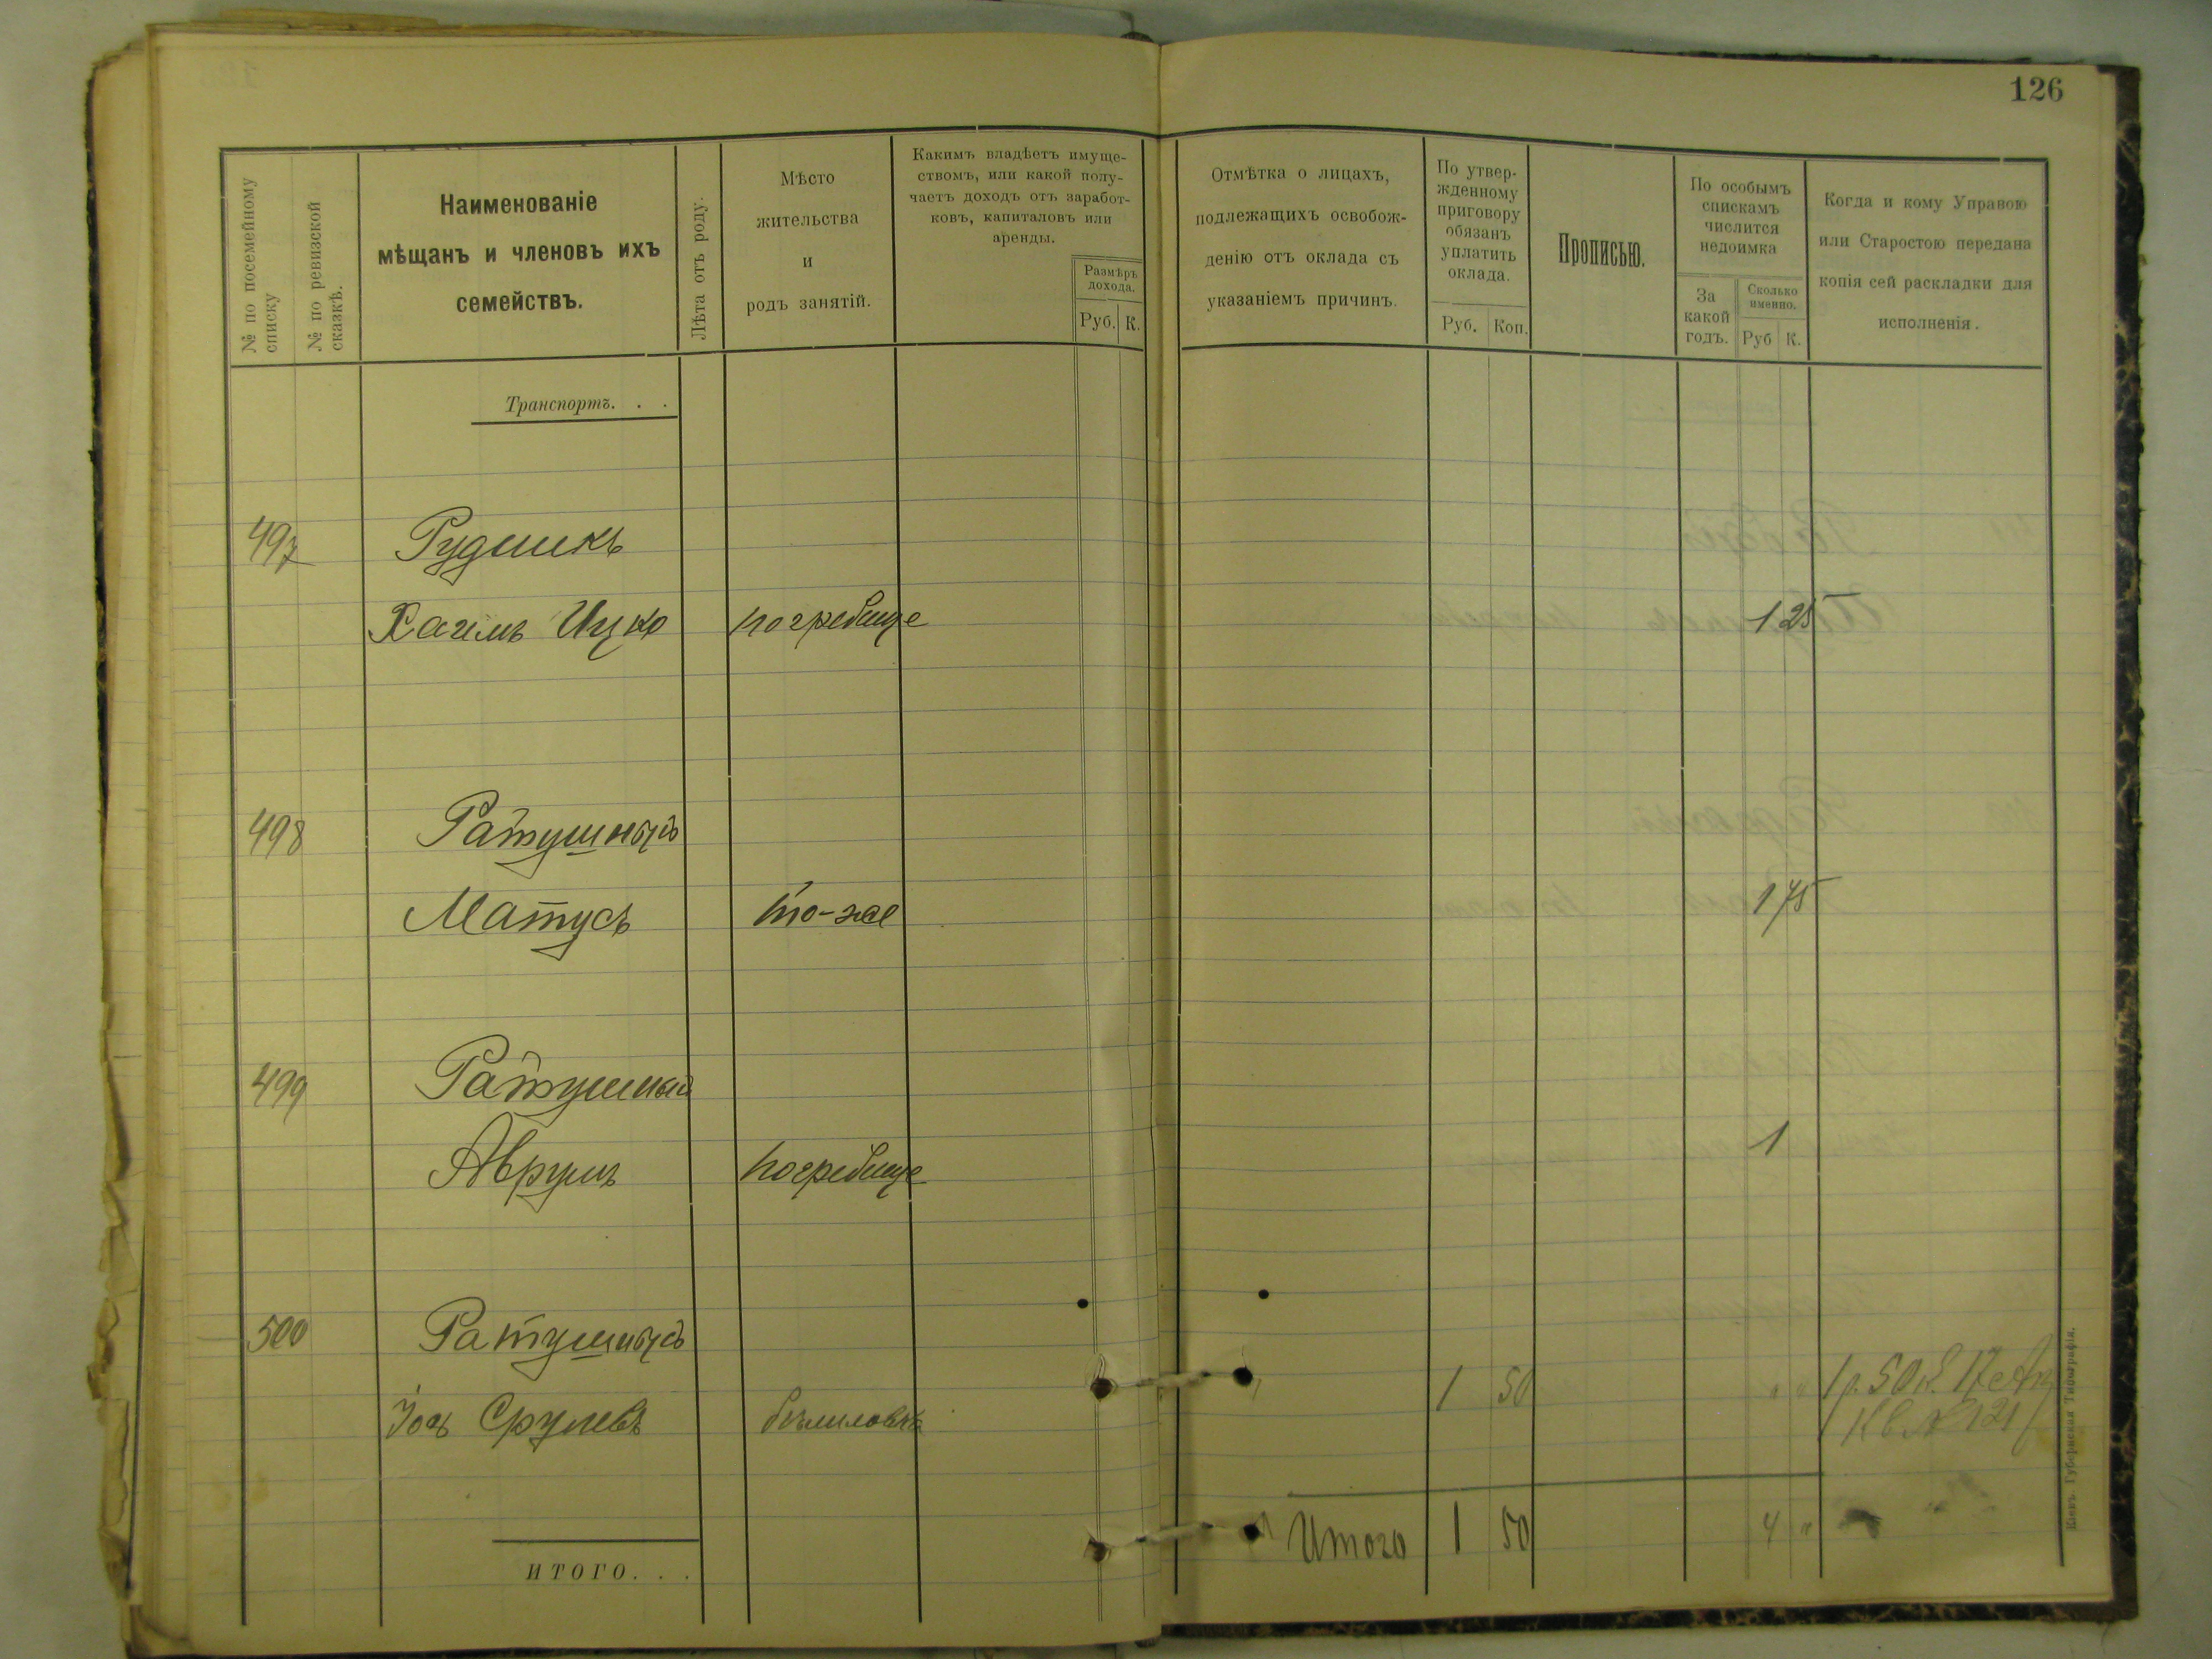 126
№ по посемейному списку
№ по ревизской сказкѣ.
Наименованіе
мѣщанъ и членовъ ихъ
семействъ.
Лѣта отъ роду.
Мѣсто
жительства
и
родъ занятій.
Какимъ владѣетъ имуще-
ствомъ, или какой полу-
чаетъ доходъ отъ заработ-
ковъ, капиталовъ или
аренды.
Размѣръ
дохода.
Руб. К.
Отмѣтка о лицахъ,
подлежащихъ освобож-
денію отъ оклада съ
указаніемъ причинъ.
По утвер-
жденному
приговору
обязанъ
уплатить
оклада.
Руб. Коп.
Прописью.
По особымъ
спискамъ
числится
недоимка
За
какой
годъ.
Сколько
именно.
Руб К.
Когда и кому Управою
или Старостою передана
копія сей раскладки для
исполненія.
Транспортъ. . .
497 Рудникъ
Хаимъ Ицко погребище 1 25
498 Ратушный
Матусъ то-же 1 75
499 Ратушный
Аврумъ погребище 1
500 Ратушный
Іось Срулевъ 1 50 " " 1 р. 50 к. 17
Кв. № 121
Итого 1 50 4 "
ИТОГО. . .
Кіевъ. Губернская Типографія.